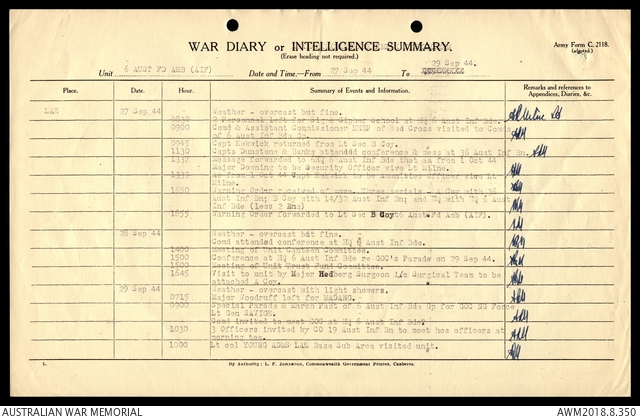 WAR DIARY or INTELLIGENCE SUMMARY.
(Erase heading not required.)
Army Form C. 2118.
(adapted.)
Unit 6 AUST FD AMB (AIF) Date and Time.—From 27 Sep 44 To 29 Sep 44.
Place. Date. Hour. Summary of Events and Information. Remarks and references to Appendices, Diaries, &c.
LAE 27 Sep 44 Weather - overcast but fine.
0830 Personnel left for Sig & Cipher School at HQ 6 Aust Inf Bde.
0900 Comd & Assistant Commissioner of Red Cross visited to Comd
of 6 Aust Inf Bde Gp.
0945 Capt Kekwick returned from Lt Sec B Coy.
1130 Capts Dunstone & Banks attended conference & mess at 36 Aust Inf Bn.
1337 Message forwarded to HQ 6 Aust Inf Bde that as from 1 Oct 44
Major Downing to be Security Officer vice Lt Milne.
1337 As from 1 Oct 44 Capt Kekwick to be Amenities Officer vice Lt
Milne.
1850 Warning Order received of move. Three serials - A Coy with 36
Aust Inf Bn; B Coy with 14/32 Aust Inf Bn; and HQ with HQ 6 Aust
Inf Bde (less 2 Bns)
1855 Warning Order forwarded to Lt Sec B Coy 6 Aust Fd Amb (AIF).
28 Sep 44 Weather - overcast but fine.
Comd attended conference at HQ 6 Aust Inf Bde.
1400 Meeting of Unit Canteen Committee.
1500 Conference at HQ 6 Aust Inf Bde re GOC's Parade on 29 Sep 44.
1500 Meeting of Unit Trust Fund Committee.
1645 Visit to unit by Major Hedberg Surgeon i/c Surgical Team to be
attached A Coy.
29 Sep 44 Weather - overcast with light showers.
0715 Major Woodruff left for MADANG.
0900 Special Parade & March Past of 6 Aust Inf Bde Gp for GOC NG Force
Lt Gen SAVIGE.
Comd invited to meet GOC at HQ 6 Aust Inf Bde.
1030 3 Officers invited by CO 19 Aust Inf Bn to meet hos officers at
morning tea.
1000 Lt col YOUNG ADMS LAE Base Sub Area visited unit.
L. By Authority: L. F. Johnston, Commonwealth Government Printer, Canberra.
AUSTRALIAN WAR MEMORIAL AWM2018.8.350